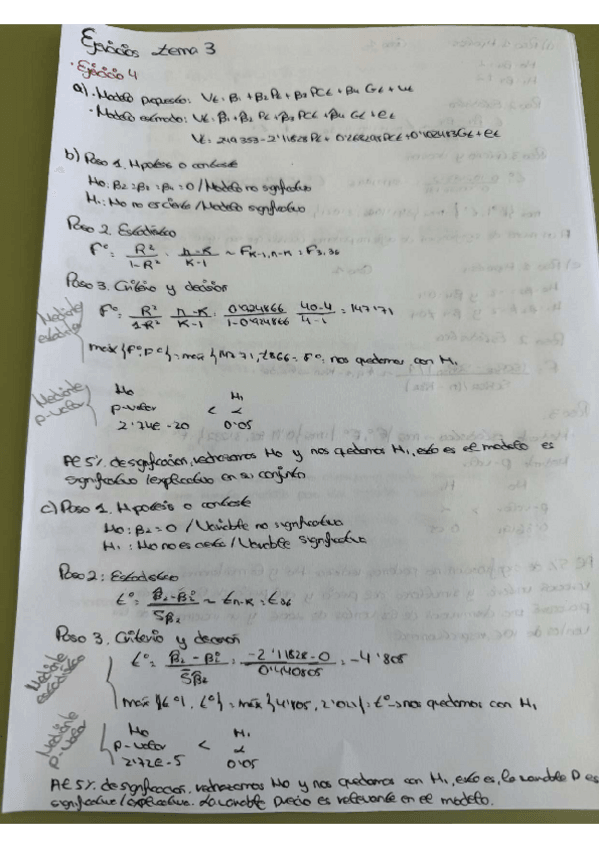 Ejercicios tema 3
· Ejercicio 4
a) · Modelo propuesto: Vt = β1 + β2 Pt + β3 PCt + β4 Gt + ut
· Modelo estimado: Vt = β̂1 + β̂2 Pt + β̂3 PCt + β̂4 Gt + et
Vt = 249'353 - 2'11828 Pt + PCt + Gt + et
b) Paso 1. Hipótesis a contraste
H0: β2 = β3 = β4 = 0 / Modelo no significativo
H1: H0 no es cierta / Modelo significativo
Paso 2. Estadístico
F° = R² / 1-R² · n-K / K-1 ~ FK-1, n-K = F3,36
Paso 3. Criterio y decisión
Mediante estadístico
F° = R² / 1-R² · n-K / K-1 = 0'924866 / 1-0'924866 · 40-4 / 4-1 = 147'71
máx {F°, Fc} = máx {147'71, 2'866} = F°, nos quedamos con H1
Mediante p-valor
H0 H1
p-valor < α
2'74E-20 0'05
Al 5% de significación, rechazamos H0 y nos quedamos H1, esto es el modelo es
significativo / explicativo en su conjunto
c) Paso 1. Hipótesis a contraste
H0: β2 = 0 / Variable no significativa
H1: H0 no es cierta / Variable significativa
Paso 2: Estadístico
t° = β̂i - βi / Sβ2 ~ tn-K = t36
Paso 3. Criterio y decisión
Mediante estadístico
t° = β̂i - βi / Sβ2 = -2'11828 - 0 / 0'440805 = -4'805
máx {|t°|, tc} = máx {4'805, 2'02} = t° → nos quedamos con H1
Mediante p-valor
H0 H1
p-valor < α
2'72E-5 0'05
Al 5% de significación, rechazamos H0 y nos quedamos con H1, esto es, la variable P es
significativa / explicativa. La variable precio es relevante en el modelo.